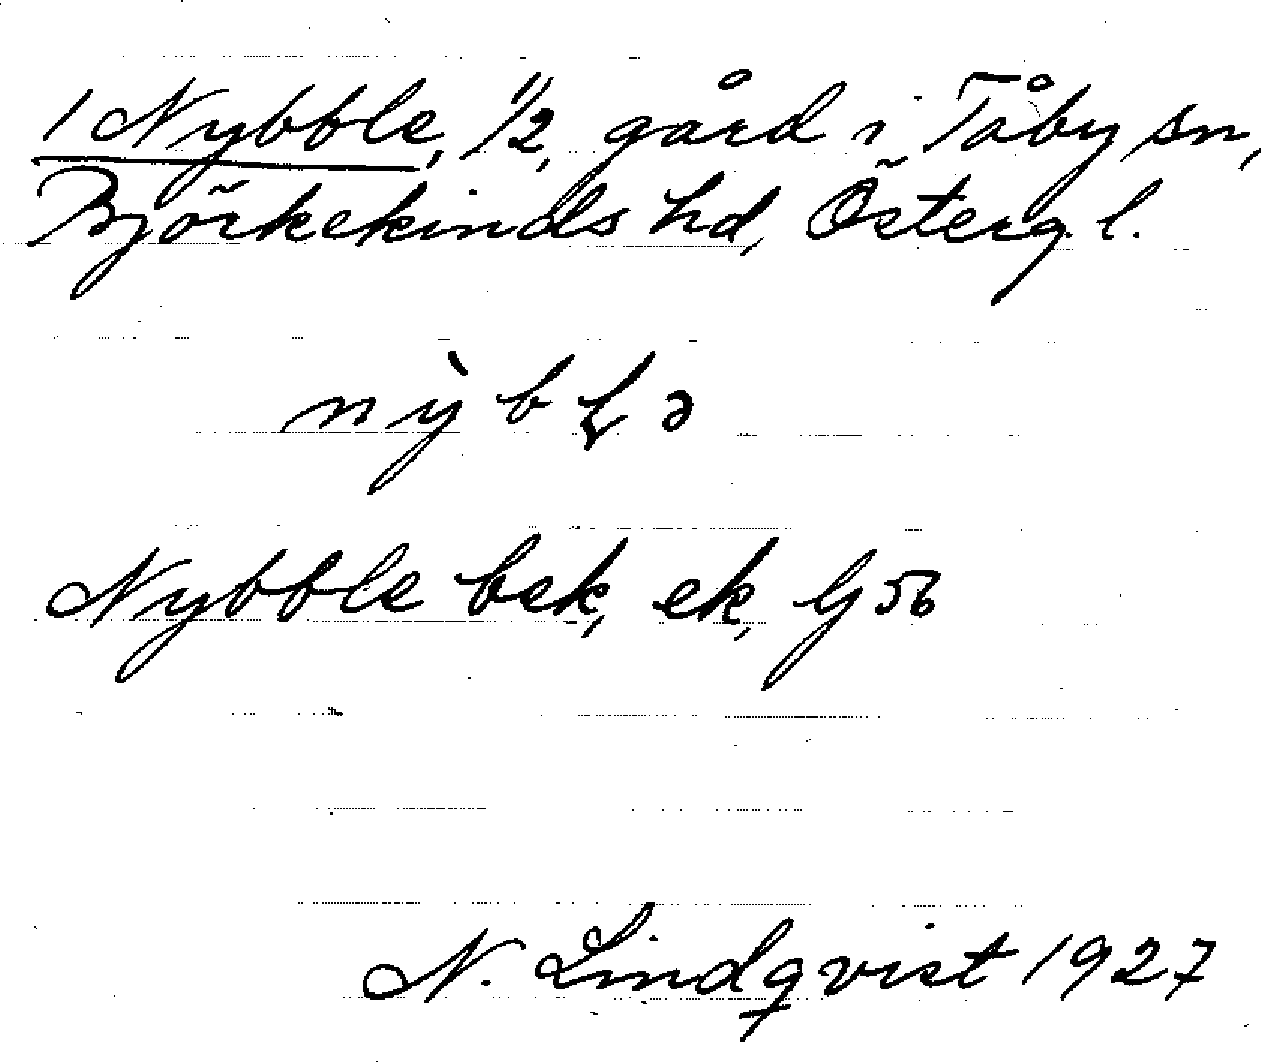 1 Nybble, 1/2, gård i Tåby sn,
Björkekinds hd, Österg. l.
nỳbłə
Nybble bek, ek, Gj 56
N. Lindqvist 1927